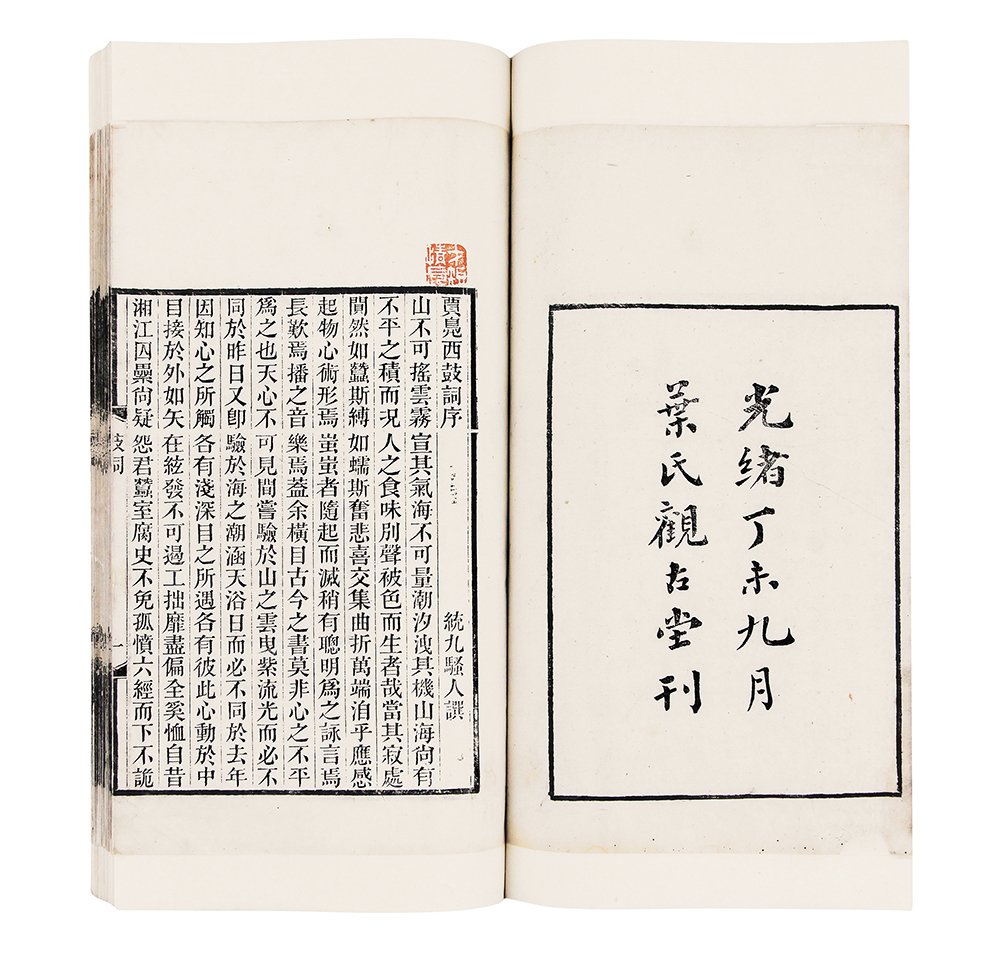 光緒丁未九月
葉氏觀古堂刊
賈鳧西鼓詞序
統九騷人譔
山不可搖雲霧宣其氣海不可量潮汐洩其機山海尚有
不平之積而況人之食味別聲被色而生者哉當其寂處
闃然如蠶斯縛如蠕斯奮悲喜交集曲折萬端洎乎應感
起物心術形焉蚩蚩者隨起而滅稍有聰明爲之詠言焉
長歎焉播之音樂焉蓋余橫目古今之書莫非心之不平
爲之也天心不可見間嘗驗於山之雲曳紫流光而必不
同於昨日又卽驗於海之潮涵天浴日而必不同於去年
因知心之所觸各有淺深目之所遇各有彼此心動於中
目接於外如矢在絃發不可遏工拙靡盡偏全奚恤自昔
湘江囚纍尙疑怨君蠶室腐史不免孤憤六經而下不詭
鼓詞
一